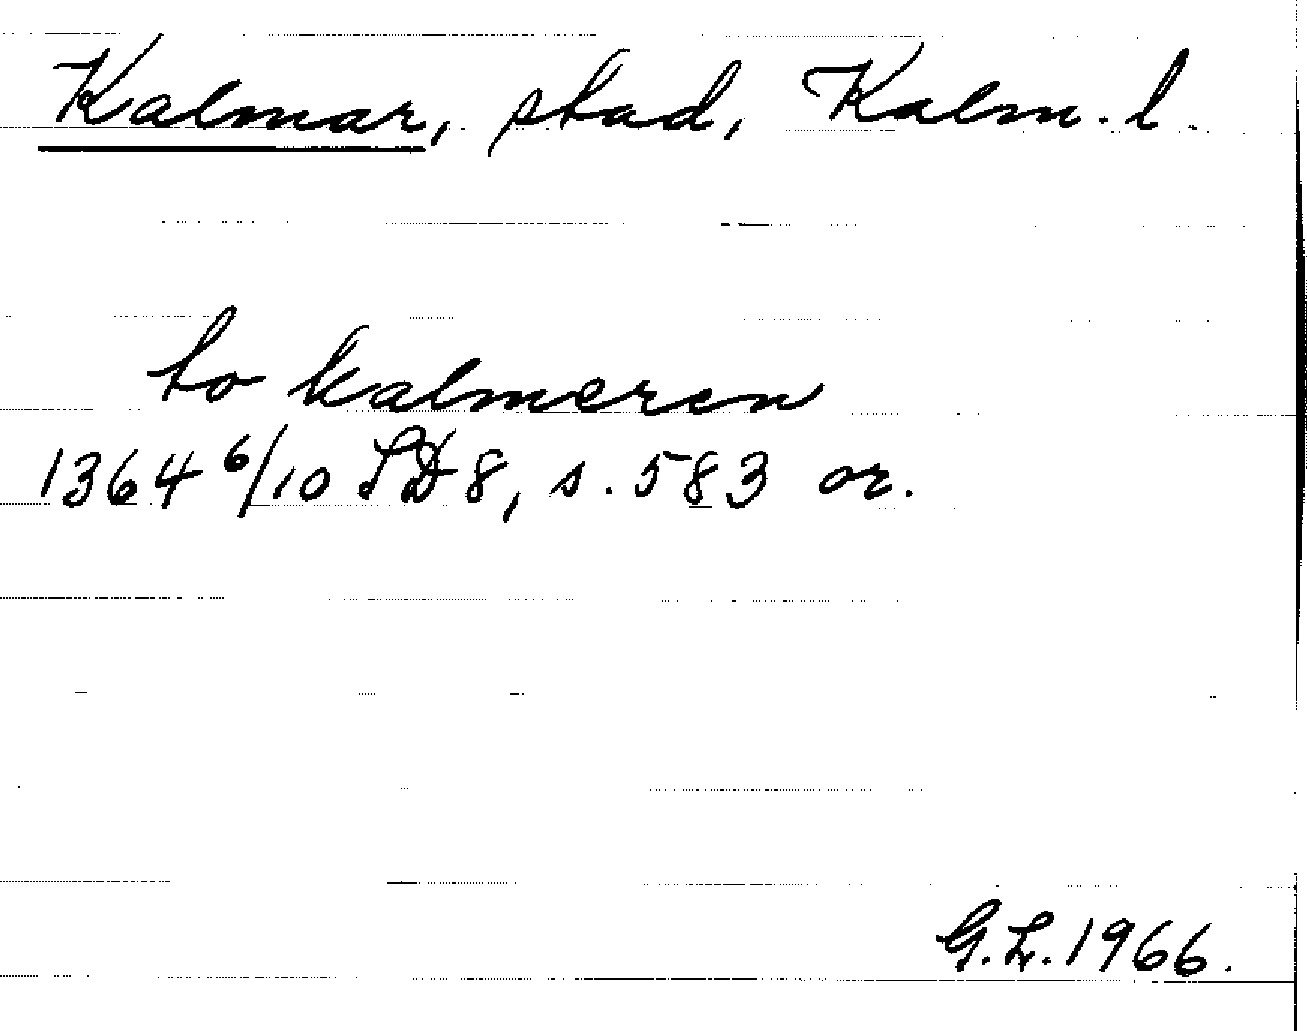 Kalmar, stad, Kalm. l.
to kalmeren
1364 6/10 SD 8, s. 583 or.
G.L. 1966.